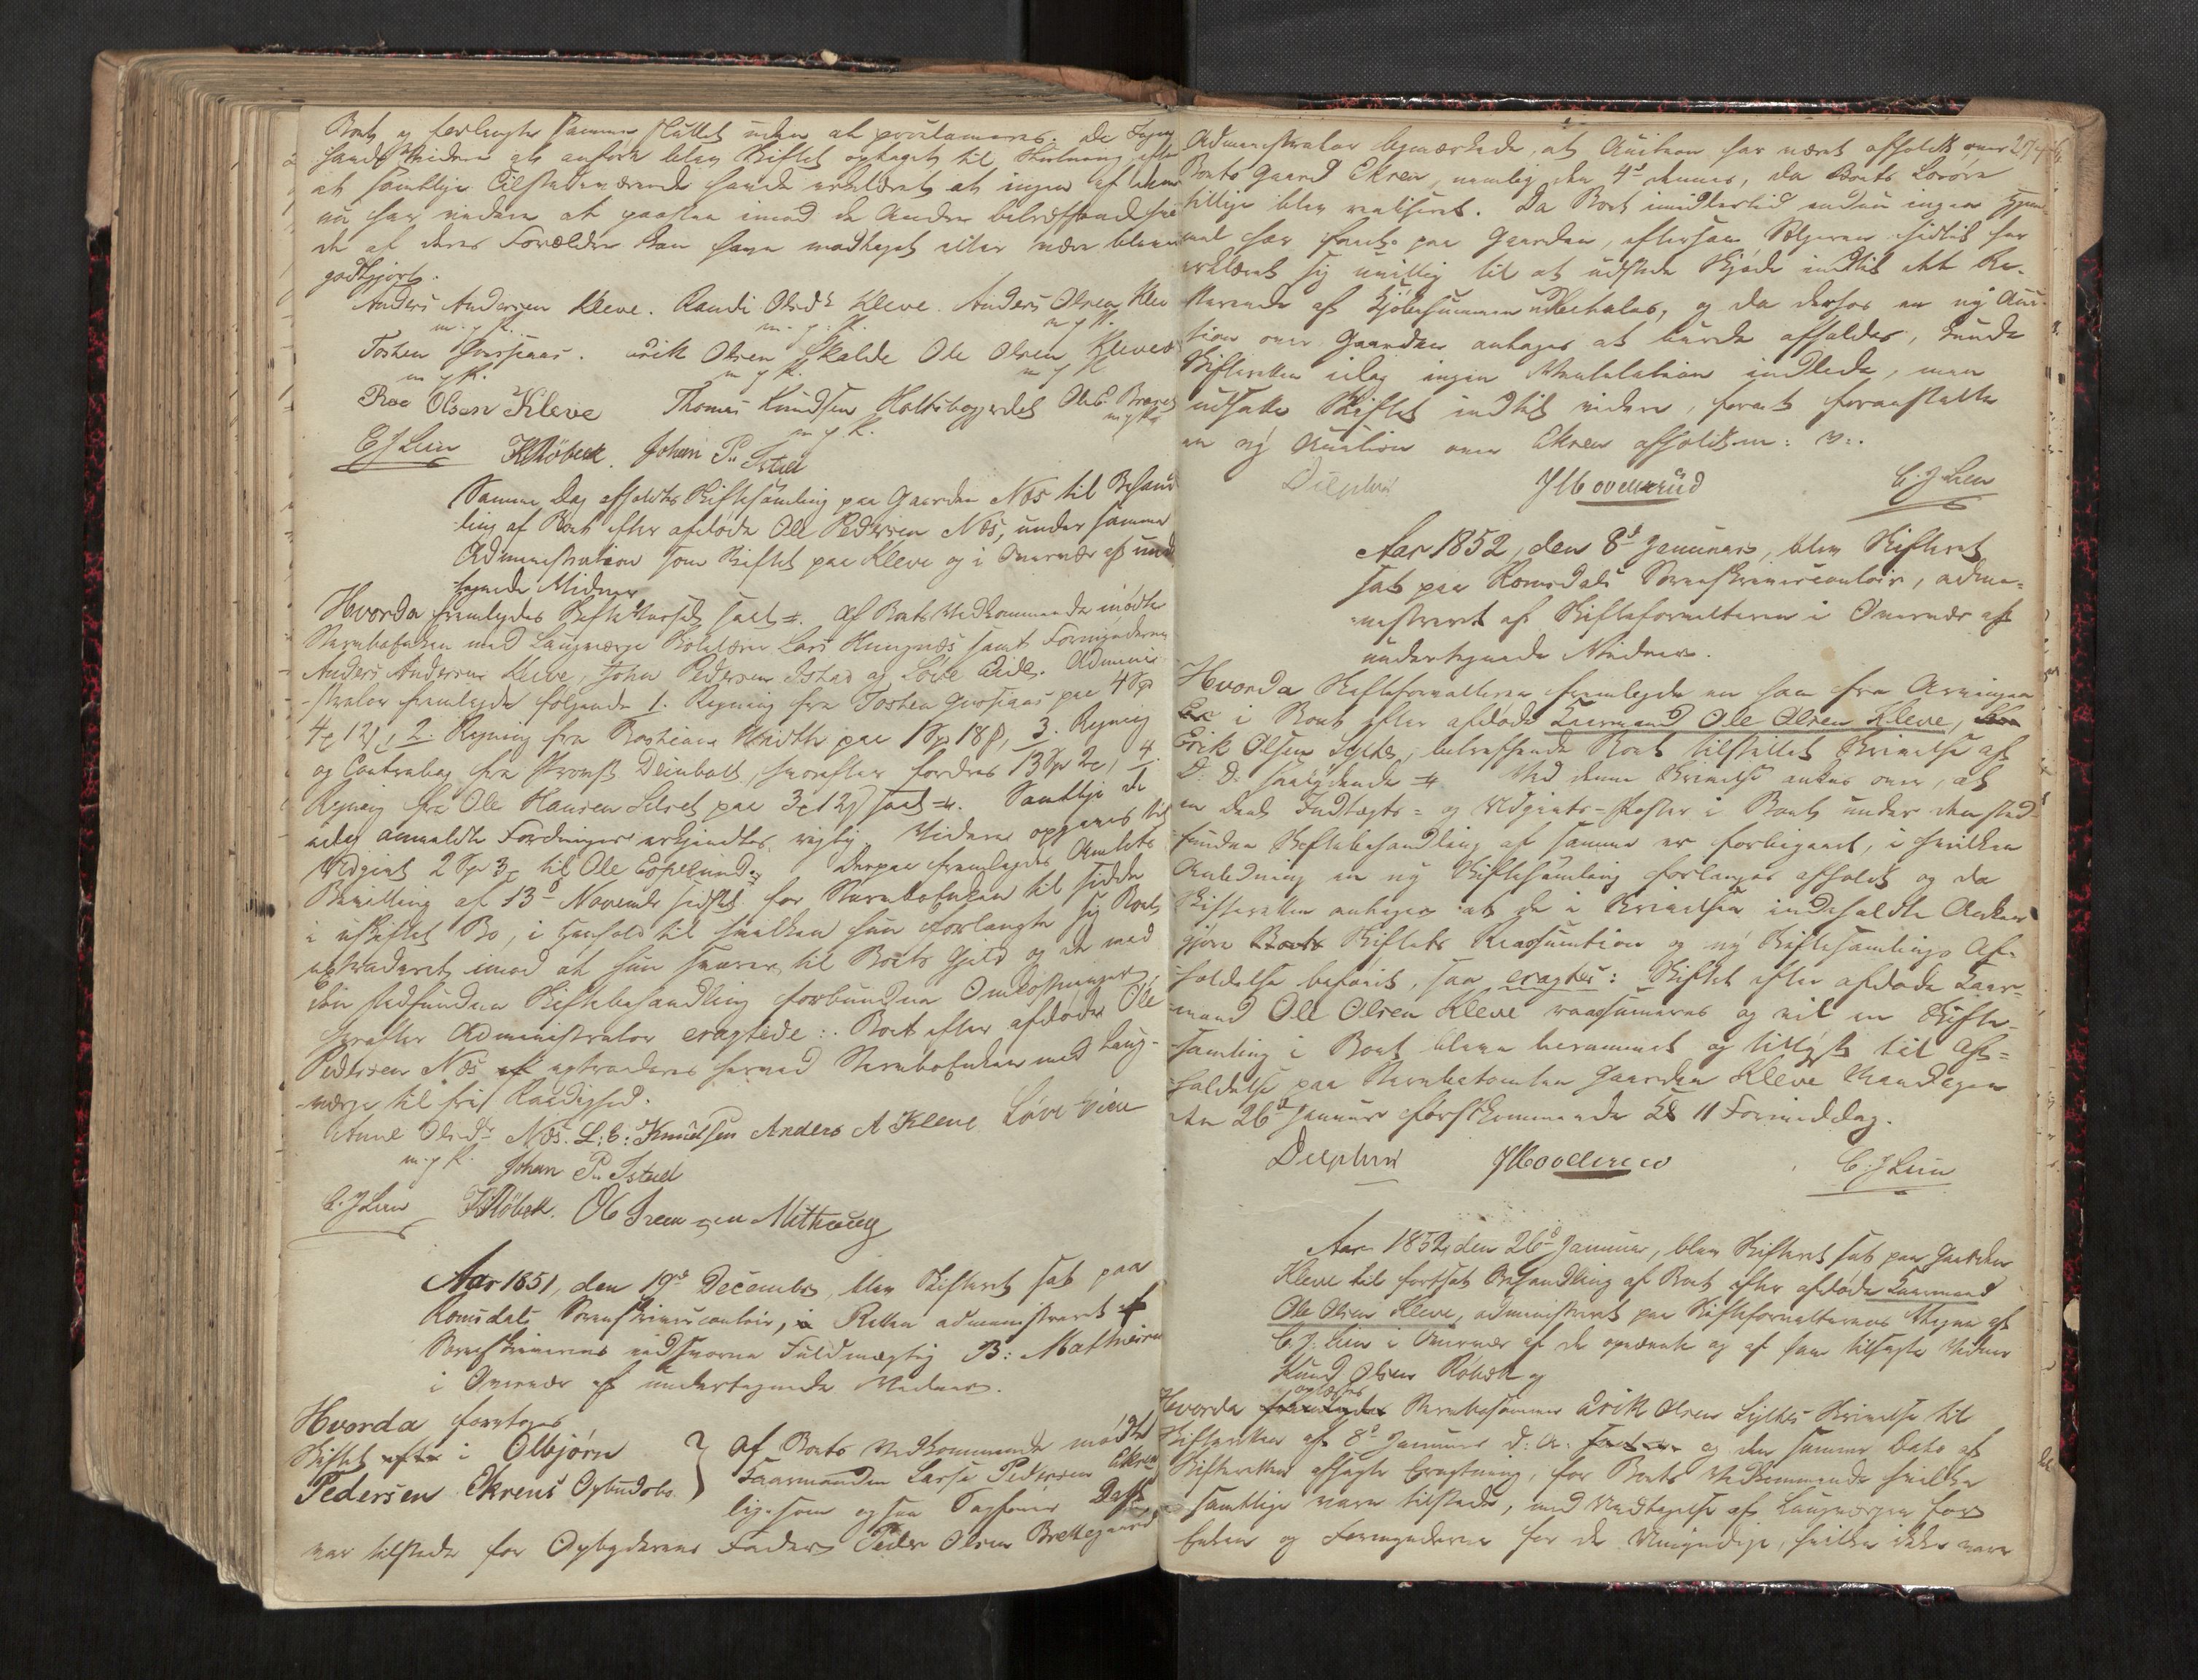 Boet og forlangte samme sluttet uden at proclameres. De Ingen
havde videre at anføre blev Skiftet optaget til Slutning efter
at samtlige Tilstedeværende havde erklæret at ingen af dem
nu har videre at paastaa imod de Andre betræffende hvad
de af deres Forældre kan have modtaget eller være bleven
godtgjort.
Anders Andersen Kleve. Randi Olsdr Kleve. Anders Olsen Kleve
m. p. P. m. p. P. m. p. P.
Tosten . Erik Olsen Skalde Ole Olsen Kleve
m p P. m p P. m p P
Roe Olsen Kleve Thomas Knudsen Holtsbogjerdet
m p P.
CJ Lein K Röbek. Johan P. Istad
Samme Dag afholdtes Skiftesamling paa Gaarden Næs til Behand
ling af Boet efter afdøde Ole Pedersen Næs, under samme
Administration som Skiftet paa Kleve og i Overvær af und
tegnede Vidner
Hvorda fremlagdes saal. Af Boets Vedkommende mødte
Stervboenken med Laugværge Lars samt Formynderne
Anders Andersen Kleve, John Pedersen Istad og Løve Eide. Admini-
strator fremlagde følgende 1. Regning fra Tosten paa 4 Spd
4 12 , 2. Regning fra paa 1 Spd 18 ß, 3. Regning
og Contrabog fra Provst Deinboll, hvorefter fordres 13 Spd 2, 4.
Regning fra Ole Hansen paa 3 12 saal. Samtlige de
idag anmeldte Fordringer erkjendtes rigtig. Videre opgaves til
Udgivt 2 Spd 3 til Ole . Derpaa fremlagdes Amtets
Bevilling af 13d November sidstl. for Stervboenken til at sidde
i uskiftet Bo, i Henhold til hvilken hun forlangte sig Boet
extraderet imod at hun svarer til Boets Gjeld og de med
den stedfundne Skiftebehandling forbundne Omkostninger,
hvorefter Administrator eragtede: Boet efter afdøde Ole
Pedersen Næs extraderes hermed Stervboenken med Laug-
værge til fri Raadighed.
Anne Olsdr Næs. L: C: Knudsen Anders A Kleve Løve Eide
m. p P. Johan P. Istad
C. J Lein K Röbek.
Aar 1851, den 19de December, blev Skifteret sat paa
Romsdals Sorenskrivercontoir, Retten administreret af
Sorenskriverens edsvorne Fuldmægtig B: Mathiesen
i Overvær af undertegnede Vidner.
Hvorda foretoges
Skiftet i Olbjørn
Pedersen Ekrens Opbudsbo
Af Boets Vedkommende mødte
Laarmanden Lasse Pedersen Ekren
ligesom ogsaa Sagfører
var tilstede for Opbyderens Fader Peder Olsen Brekkegaard
Administrator bemærkede, at Auction har været afholdt over
Boets Gaard Ekren, nemlig den 4de dennes, da Boets Løsøre
tillige blev realiseret. Da Boet imidlertid endnu ingen Hjem-
mel har faaet paa Gaarden, eftersom Sælgeren hidtil har
erklæret sig uvillig til at udstede Skjøde indtil det Re-
sterende af Kjøbesummen udbetales, og da derfor en ny Auc-
tion over Gaarden antages at burde afholdes, kunde
Skifteretten idag ingen Realisation indlede, men
udsatte Skiftet indtil videre, for at foranstalte
en ny Auction over Ekren afholdt m: v:.
Delphin J Hovderud C. J Lein
Aar 1852, den 8de Januar, blev Skifteret
sat paa Romsdals Sorenskrivercontoir, admi-
nistreret af Skifteforvalteren i Overvær af
undertegnede Vidner.
Hvorda Skifteforvalteren fremlagde en ham fra Arvingen
i Boet efter afdøde Laarmand Ole Olsen Kleve,
Erik Olsen Sylte, betræffende Boet tilstillet Skrivelse af
D: D: saalydende. Ved denne Skrivelse ankes over, at
en deel Indtægts= og Udgivts-Poster i Boet under den sted-
fundne Skiftebehandling af samme er forbigaaet, i hvilken
Anledning en ny Skiftesamling forlanges afholdt og da
Skifteretten antager at de i Skrivelsen indeholdte Anker
gjøre Skiftets Reassumtion og ny Skiftesamlings Af-
holdelse beføiet, saa eragtes: Skiftet efter afdøde Laar-
mand Ole Olsen Kleve reassumeres og vil en Skifte-
samling i Boet blive berammet og tillyst til Af=
holdelse paa Stervbotomten Gaarden Kleve Mandagen
den 26d Januar førstkommende Kl 11 Formiddag.
Delphin J Hovderud C. J Lein
Aar 1852, den 26d Januar, blev Skifteret sat paa Gaarden
Kleve til fortsat Behandling af Boet efter afdøde Laarmand
Ole Olsen Kleve, administreret paa Skifteforvalterens Vegne af
C. J. Lein i Overvær af de opnævnte og af ham tilsagte Vidner
Knud Olsen Röbek og
Hvorda oplæstes Stervbosønnen Erik Olsen Syltes Skrivelse til
Skifteretten af 8d Januar d: A: og den samme Dato af
Skifteretten afsagte Eragtning, for Boets Vedkommende hvilke
samtlige vare tilstede, med Undtagelse af Laugværgen for
Enken og Formynderne for de Umyndige, hvilke ikke vare